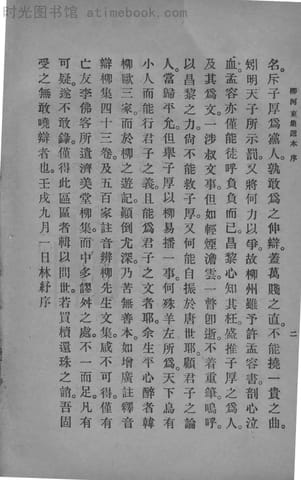 时光图书馆 - www.atimebook.com
柳河東集選本 序
二
名斥子厚爲黨人。孰敢爲之伸辯。蓋萬賤之直。不能撓一貴之曲。
矧明天子所示罰。又將何力以爭。故柳州雖予許孟容書。剖心泣
血。孟容亦僅能徒呼負負而已。昌黎心知其枉。盛推子厚之爲人。
及其爲文。一涉叔文事。但如輕煙澹雲。一瞥卽逝。不着重筆。嗚呼。
以昌黎之力。尙不能救子厚。又何能自振於唐世耶。顧君子之論
人。當歸平允。但舉子厚以柳易播一事。何殊羊左所爲。天下烏有
小人而能行君子之義。且能爲君子之文者耶。余生平心醉者韓
柳歐三家。而於柳之遊記。顚倒尤深。乃苦無善本。如增廣註釋音
辯柳集四十三卷。及五百家註音辯柳先生文集。咸不可得。僅有
亡友李佛客所遺濟美堂柳集。而中多謬舛之處。不一而足。凡有
可疑。遂不敢錄。僅得此區區者。輯以問世。若買櫝還珠之誚。吾固
受之無敢曉辯者也。壬戌九月一日林紓序